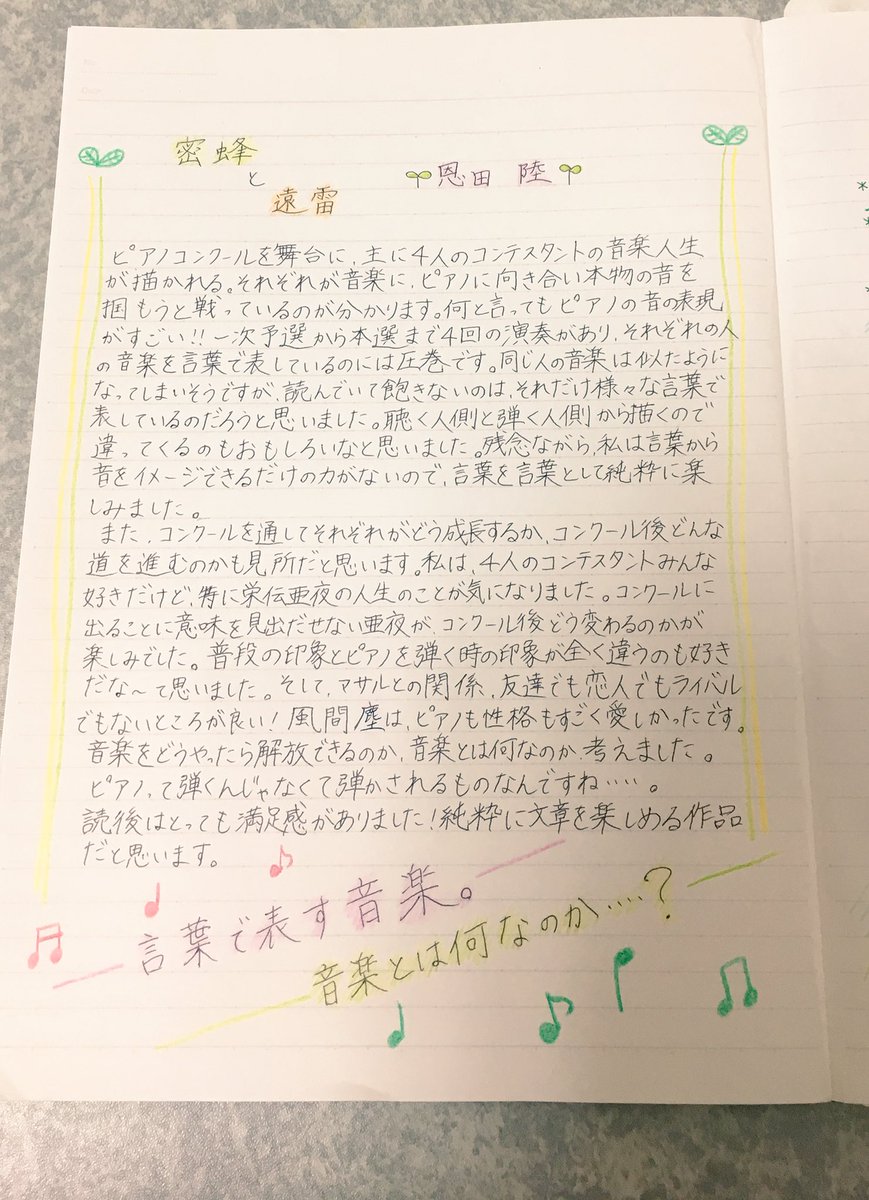 密蜂
と
遠雷
恩田 陸
ピアノコンクールを舞台に、主に4人のコンテスタントの音楽人生
が描かれる。それぞれが音楽に、ピアノに向き合い本物の音を
掴もうと戦っているのが分かります。何と言ってもピアノの音の表現
がすごい!!一次予選から本選まで4回の演奏があり、それぞれの人
の音楽を言葉で表しているのには圧巻です。同じ人の音楽は似たように
なってしまいそうですが、読んでいて飽きないのは、それだけ様々な言葉で
表しているのだろうと思いました。聴く人側と弾く人側から描くので
違ってくるのもおもしろいなと思いました。残念ながら、私は言葉から
音をイメージできるだけの力がないので、言葉を言葉として純粋に楽
しみました。
また、コンクールを通してそれぞれがどう成長するか、コンクール後どんな
道を進むのかも見所だと思います。私は、4人のコンテスタントみんな
好きだけど、特に栄伝亜夜の人生のことが気になりました。コンクールに
出ることに意味を見出だせない亜夜が、コンクール後どう変わるのかが
楽しみでした。普段の印象とピアノを弾く時の印象が全く違うのも好き
だな〜て思いました。そして、マサルとの関係、友達でも恋人でもライバル
でもないところが良い!風間塵は、ピアノも性格もすごく愛しかったです。
音楽をどうやったら解放できるのか、音楽とは何なのか、考えました。
ピアノって弾くんじゃなくて弾かされるものなんですね……。
読後はとっても満足感がありました!純粋に文章を楽しめる作品
だと思います。
言葉で表す音楽。
音楽とは何なのか‥‥?